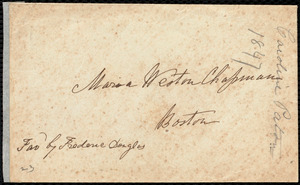 Maria Weston Chapman
Boston
Fav by Frederic Douglas
23
1847